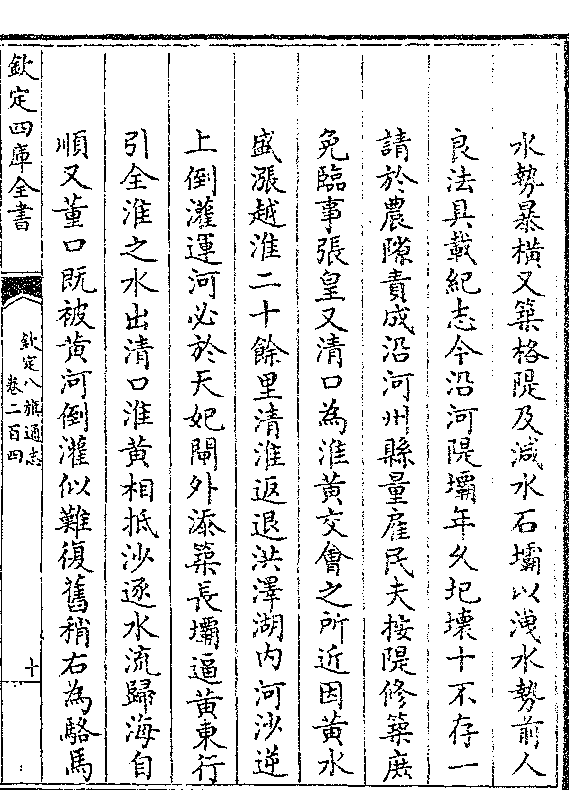 水勢暴橫又築格隄及減水石壩以洩水勢前人
良法具載紀志今沿河隄壩年久圮壞十不存一
請於農隙責成沿河州縣量雇民夫按隄修築庶
免臨事張皇又清口為淮黃交會之所近因黃水
盛漲越淮二十餘里清淮返退洪澤湖內河沙逆
上倒灌運河必於天妃閘外添築長壩逼黃東行
引全淮之水出清口淮黃相抵沙逐水流歸海自
順又董口既被黃河倒灌似難復舊稍右為駱馬
欽定四庫全書
欽定八旗通志
卷二百四
十